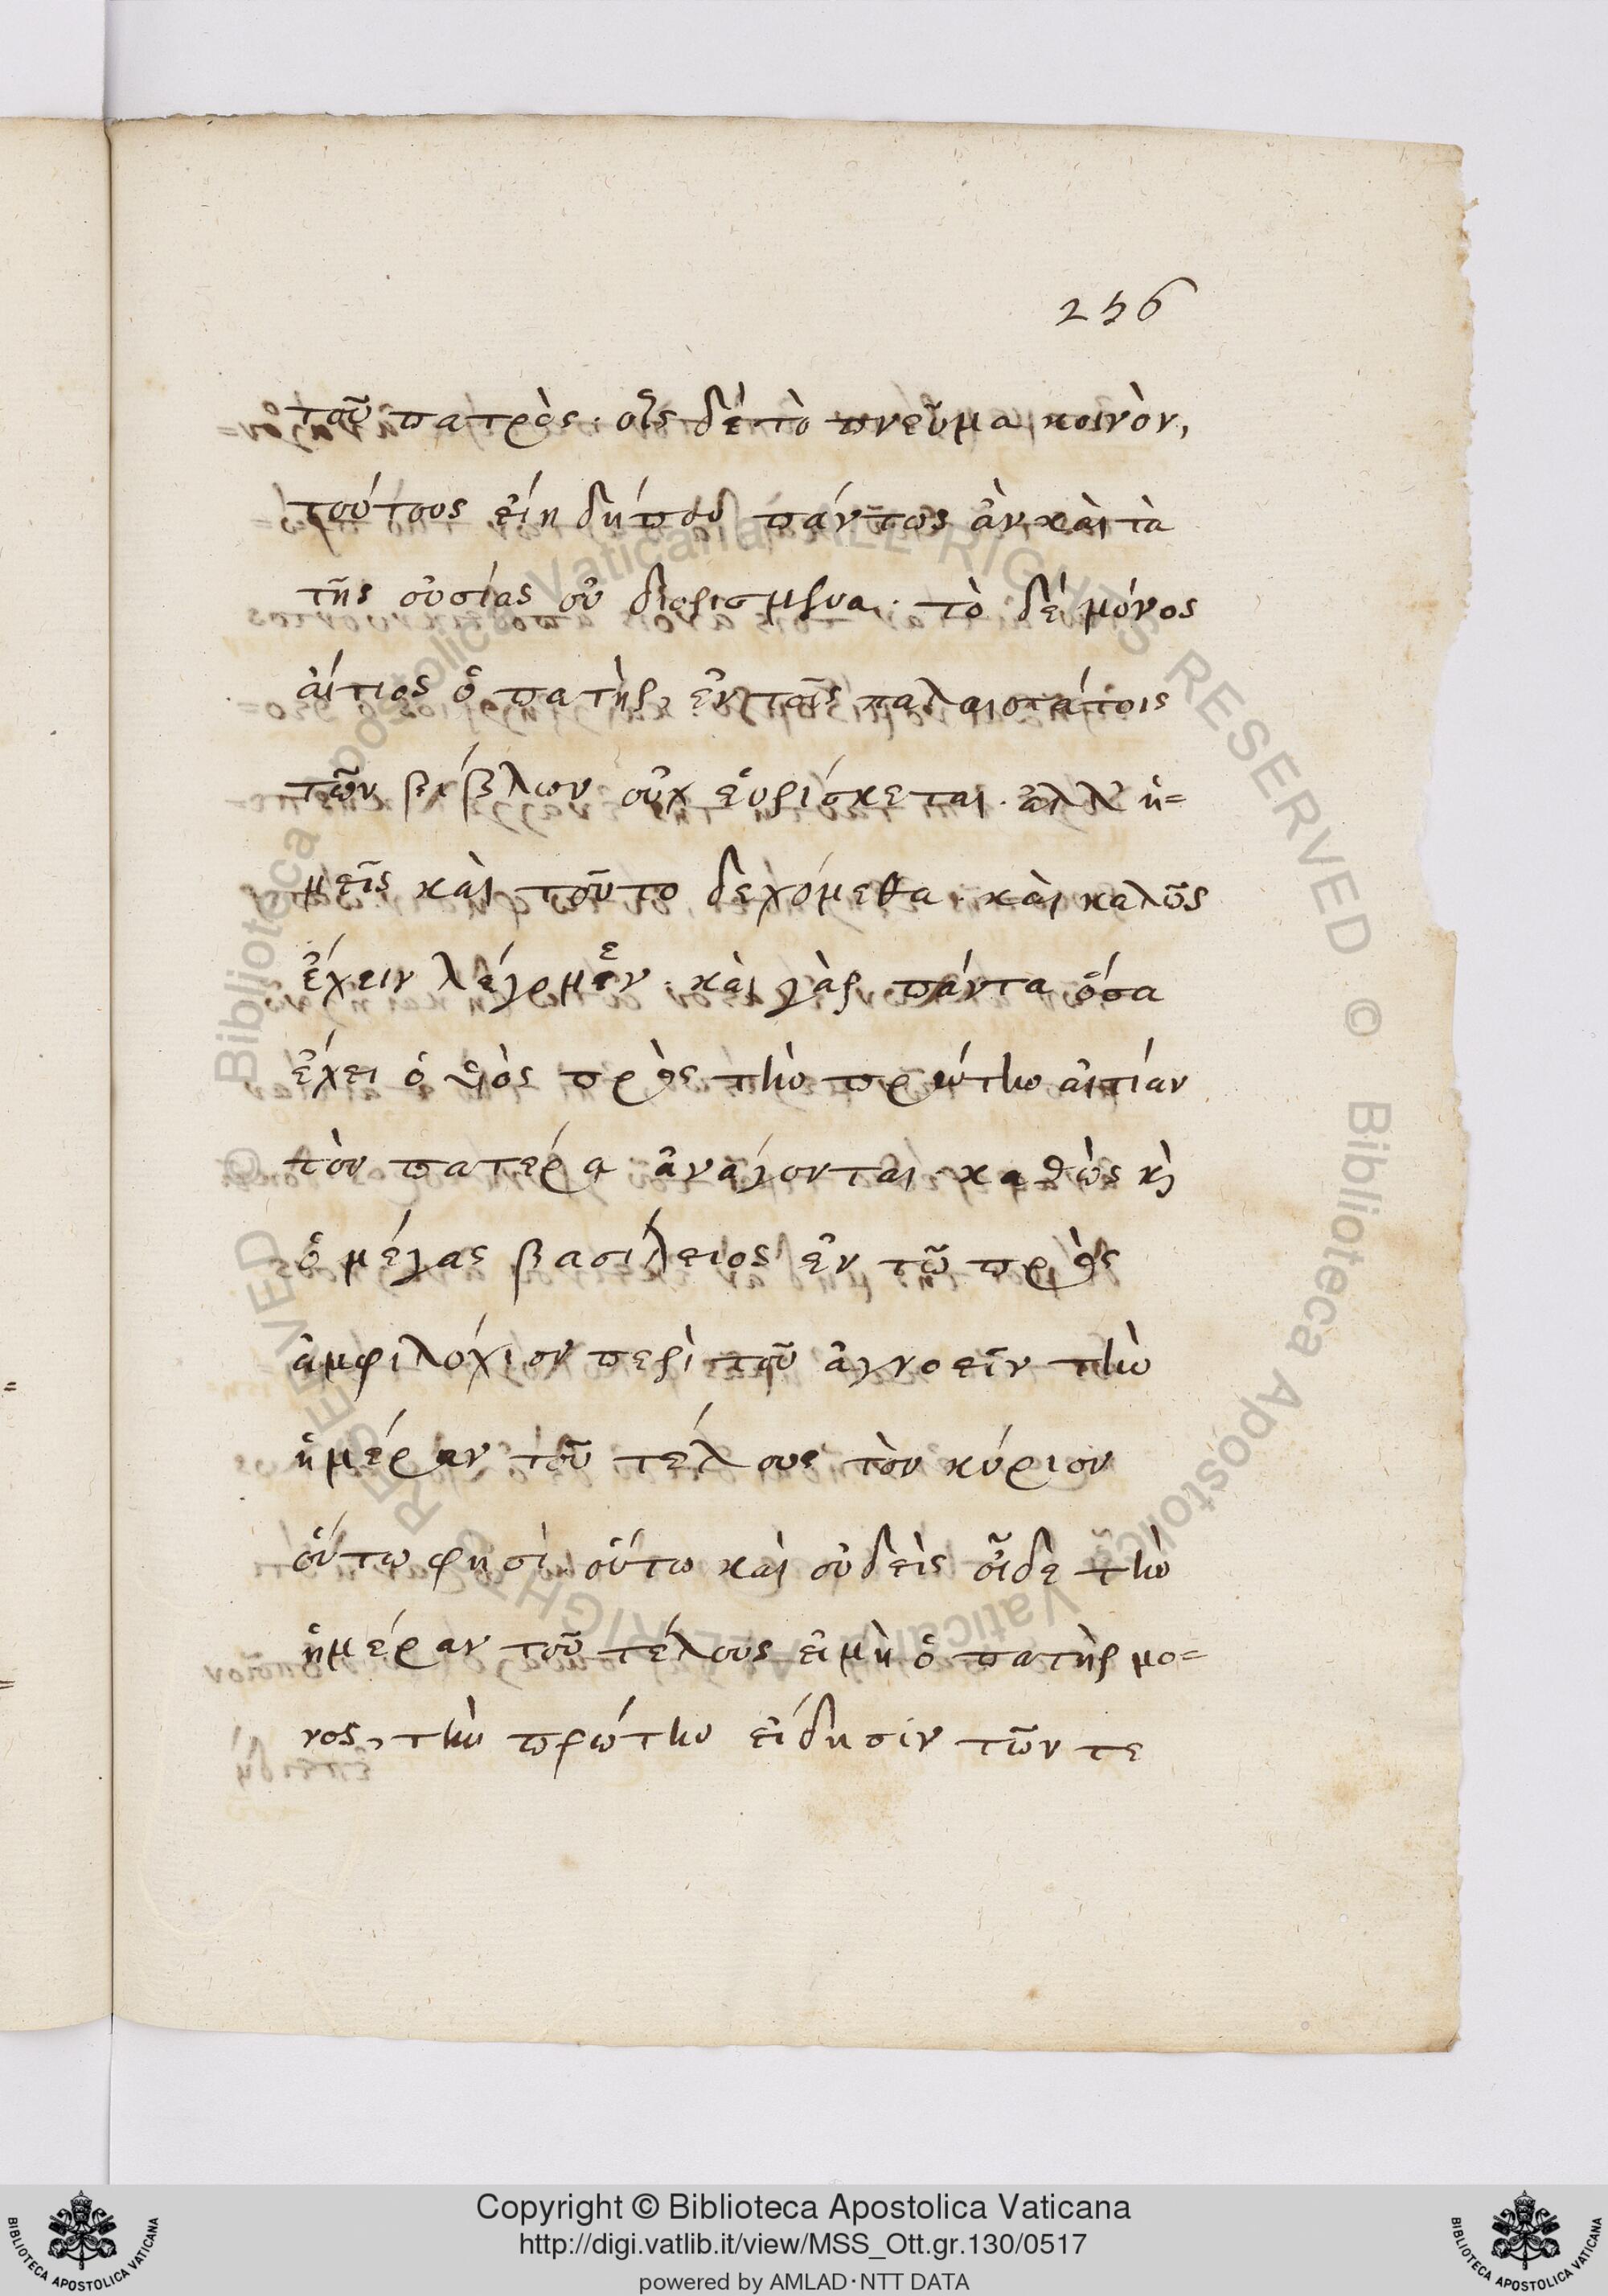 256
τοῦ πατρὸς· οἷς δὲ τὸ πνεῦμα κοινὸν,
τούτοις εἴη δήπου πάντως ἂν καὶ τὰ
τῆς οὐσίας οὐ διορισμένα· τὸ δὲ μόνος
αἴτιος ὁ πατὴρ, ἐν τοῖς παλαιοτάτοις
τῶν βίβλων οὐχ εὑρίσκεται· ἀλλ' ἡ=
μεῖς καὶ τοῦτο δεχόμεθα· καὶ καλῶς
ἔχειν λέγομεν· καὶ γὰρ πάντα ὅσα
ἔχει ὁ υἱὸς πρὸς τὴν πρώτην αἰτίαν
τὸν πατέρα ἀνάγονται· καθὼς καὶ
ὁ μέγας βασίλειος ἐν τῷ πρὸς
ἀμφιλόχιον περὶ τοῦ ἀγνοεῖν τὴν
ἡμέραν τοῦ τέλους τὸν κύριον
οὕτω φησὶ· οὕτω καὶ οὐδεὶς οἶδε τὴν
ἡμέραν τοῦ τέλους εἰ μὴ ὁ πατὴρ μο=
νος, τὴν πρώτην εἴδησιν τῶν τε
© Biblioteca Apostolica Vaticana ALL RIGHTS RESERVED © Biblioteca Apostolica Vaticana ALL RIGHTS RESERVED
Copyright © Biblioteca Apostolica Vaticana
http://digi.vatlib.it/view/MSS_Ott.gr.130/0517
powered by AMLAD·NTT DATA
BIBLIOTECA APOSTOLICA VATICANA
BIBLIOTECA APOSTOLICA VATICANA